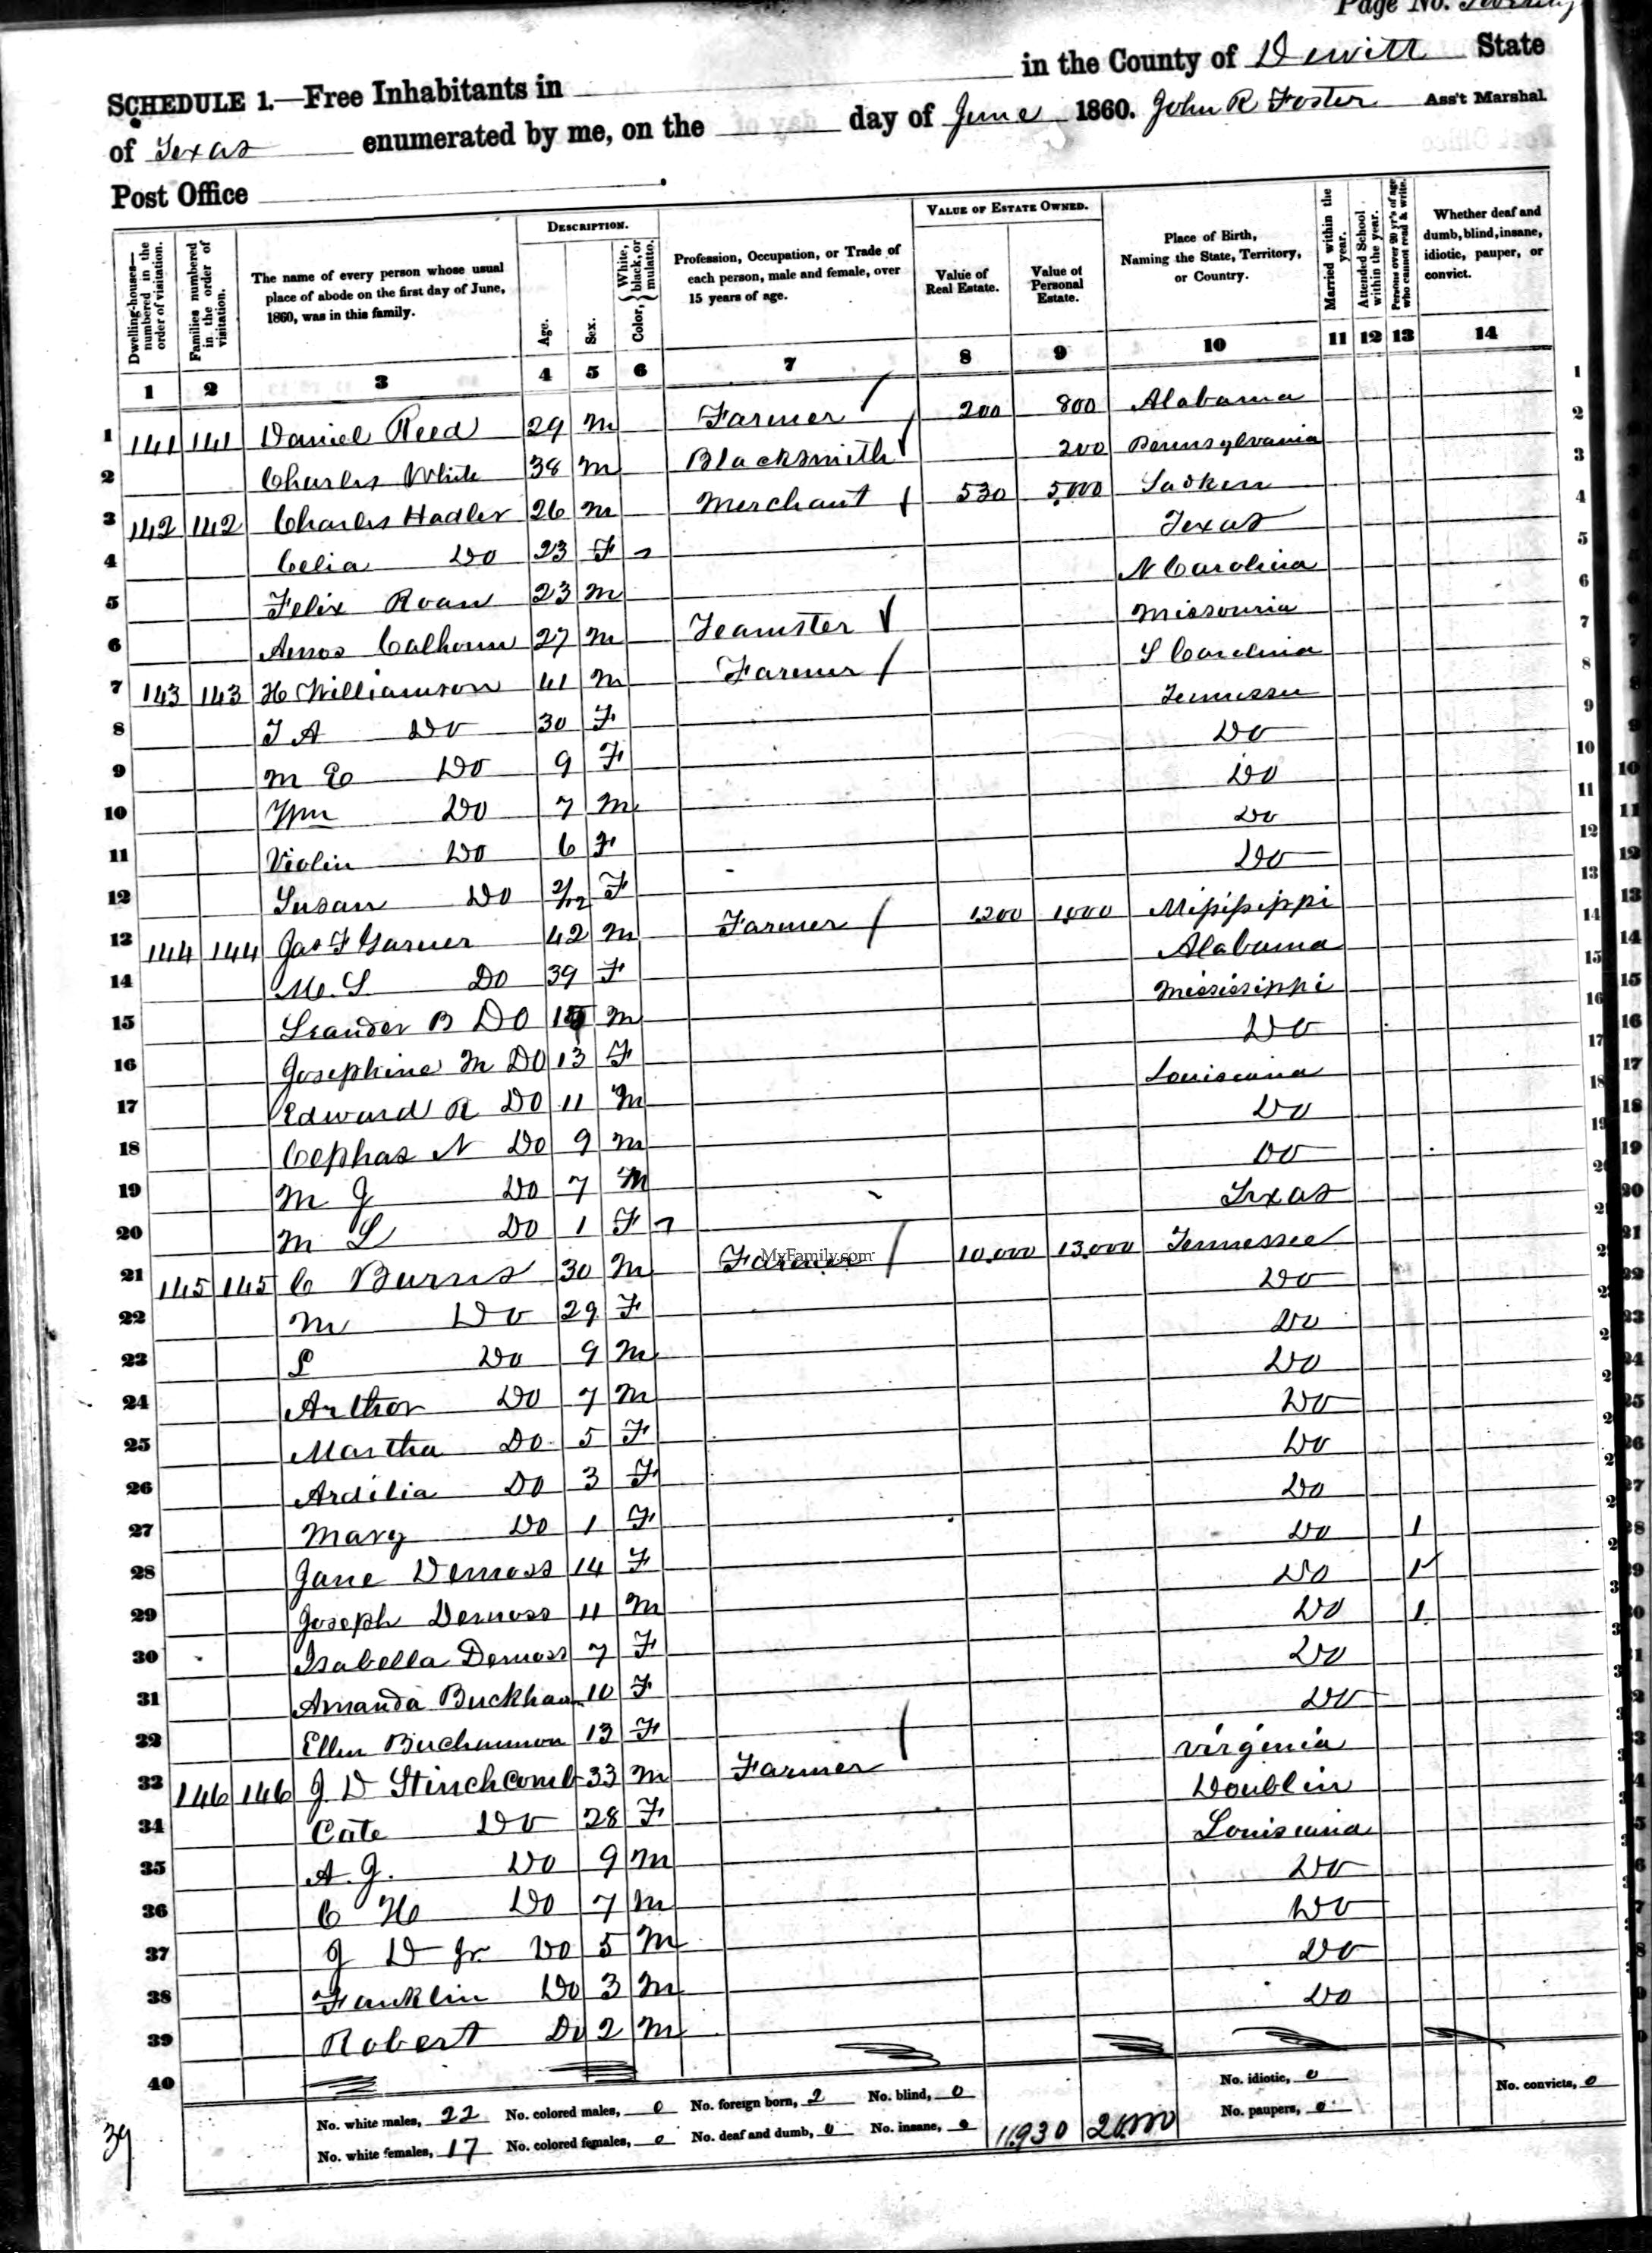 Page No.
SCHEDULE 1.—Free Inhabitants in in the County of Dewitt State
of Texas enumerated by me, on the day of June 1860. John R Foster Ass't Marshal.
Post Office
Dwelling-houses—numbered in the order of visitation.
Families numbered in the order of visitation.
The name of every person whose usual place of abode on the first day of June, 1860, was in this family.
DESCRIPTION.
Age.
Sex.
Color, White, black, or mulatto.
Profession, Occupation, or Trade of each person, male and female, over 15 years of age.
VALUE OF ESTATE OWNED.
Value of Real Estate.
Value of Personal Estate.
Place of Birth, Naming the State, Territory, or Country.
Married within the year.
Attended School within the year.
Persons over 20 yr's of age who cannot read & write.
Whether deaf and dumb, blind, insane, idiotic, pauper, or convict.
1 2 3 4 5 6 7 8 9 10 11 12 13 14
1 141 141 Daniel Reed 29 M Farmer 200 800 Alabama
2 Charles White 38 M Blacksmith 200 Pennsylvania
3 142 142 Charles Hadler 26 M Merchant 530 5,000
4 Celia Do 23 F Texas
5 Felix Roan 23 M N Carolina
6 Amos Calhoun 27 M Teamster Missouria
7 143 143 H Williamson 41 M Farmer S Carolina
8 T A Do 30 F Tennessee
9 M E Do 9 F Do
10 Wm Do 7 M Do
11 Violin Do 6 F Do
12 Susan Do 2/12 F Do
13 144 144 Jas F Garner 42 M Farmer 1200 1,000 Missisippi
14 M. S Do 39 F Alabama
15 Leander B Do M Mississippi
16 Josephine M Do 13 F Do
17 Edward R Do 11 M Louisiana
18 Cephas N Do 9 M Do
19 M J Do 7 M Do
20 M L Do 1 F Texas
21 145 145 C Burns 30 M Farmer 10,000 13,000 Tennessee
MyFamily.com
22 M Do 29 F Do
23 S Do 9 M Do
24 Arthor Do 7 M Do
25 Martha Do 5 F Do
26 Ardilia Do 3 F Do
27 Mary Do 1 F Do
28 Jane Demoss 14 F Do 1
29 Joseph Demoss 11 M Do 1
30 Isabella Demoss 7 F Do 1
31 Amanda Buckhan 10 F Do
32 Ellen Buchannon 13 F Do
33 146 146 J D Stinchcomb 33 M Farmer Virginia
34 Cate Do 28 F Doublin
35 A. J. Do 9 M Louisiana
36 C H Do 7 M Do
37 J D Jr. Do 5 M Do
38 Fanklin Do 3 M Do
39 Robert Do 2 M Do
40
No. white males, 22 No. colored males, 0 No. foreign born, 2 No. blind, 0 No. idiotic, 0 No. convicts, 0
No. white females, 17 No. colored females, 0 No. deaf and dumb, 0 No. insane, 0 11,930 20,000 No. paupers, 0
39